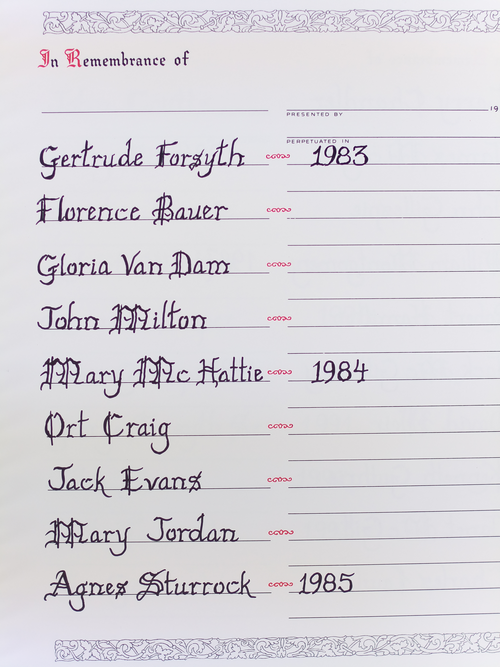 In Remembrance of
PRESENTED BY 19
PERPETUATED IN
Gertrude Forsyth 1983
Florence Bauer
Gloria Van Dam
John Milton
Mary Mc Hattie 1984
Ort Craig
Jack Evans
Mary Jordan
Agnes Sturrock 1985